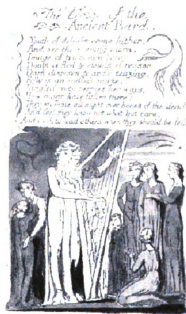 The Voice of the
Ancient Bard.
Youth of delight come hither,
And see the opening morn,
Image of truth new born.
Doubt is fled & clouds of reason
Dark disputes & artful teazing.
Folly is an endless maze,
Tangled roots perplex her ways,
How many have fallen there!
They stumble all night over bones of the dead
And feel they know not what but care
And wish to lead others when they should be led